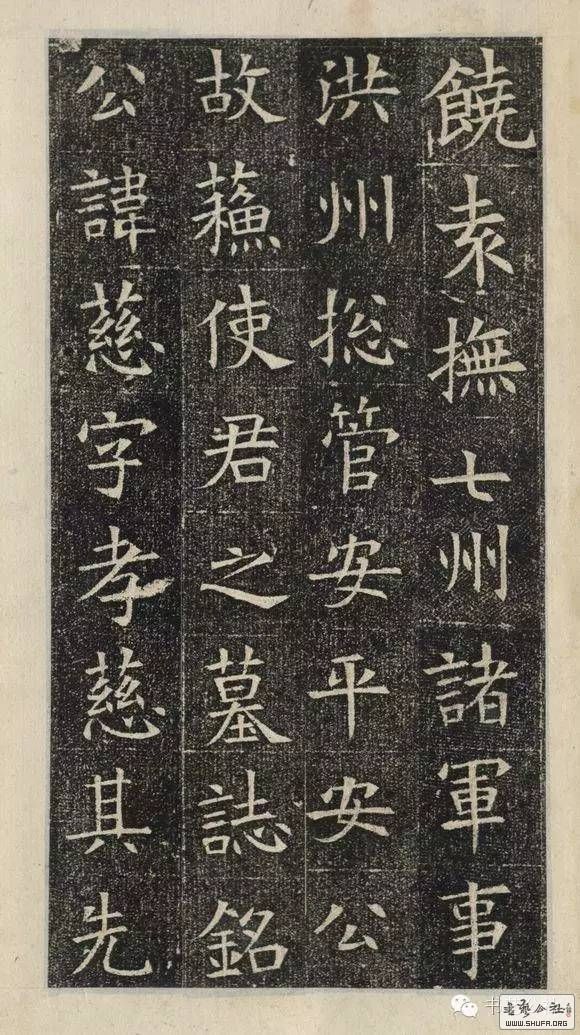 饒袁撫七州諸軍事
洪州捴管安平安公
故蘓使君之墓誌銘
公諱慈字孝慈其先
书
書藝公社
WWW.SHUFA.ORG